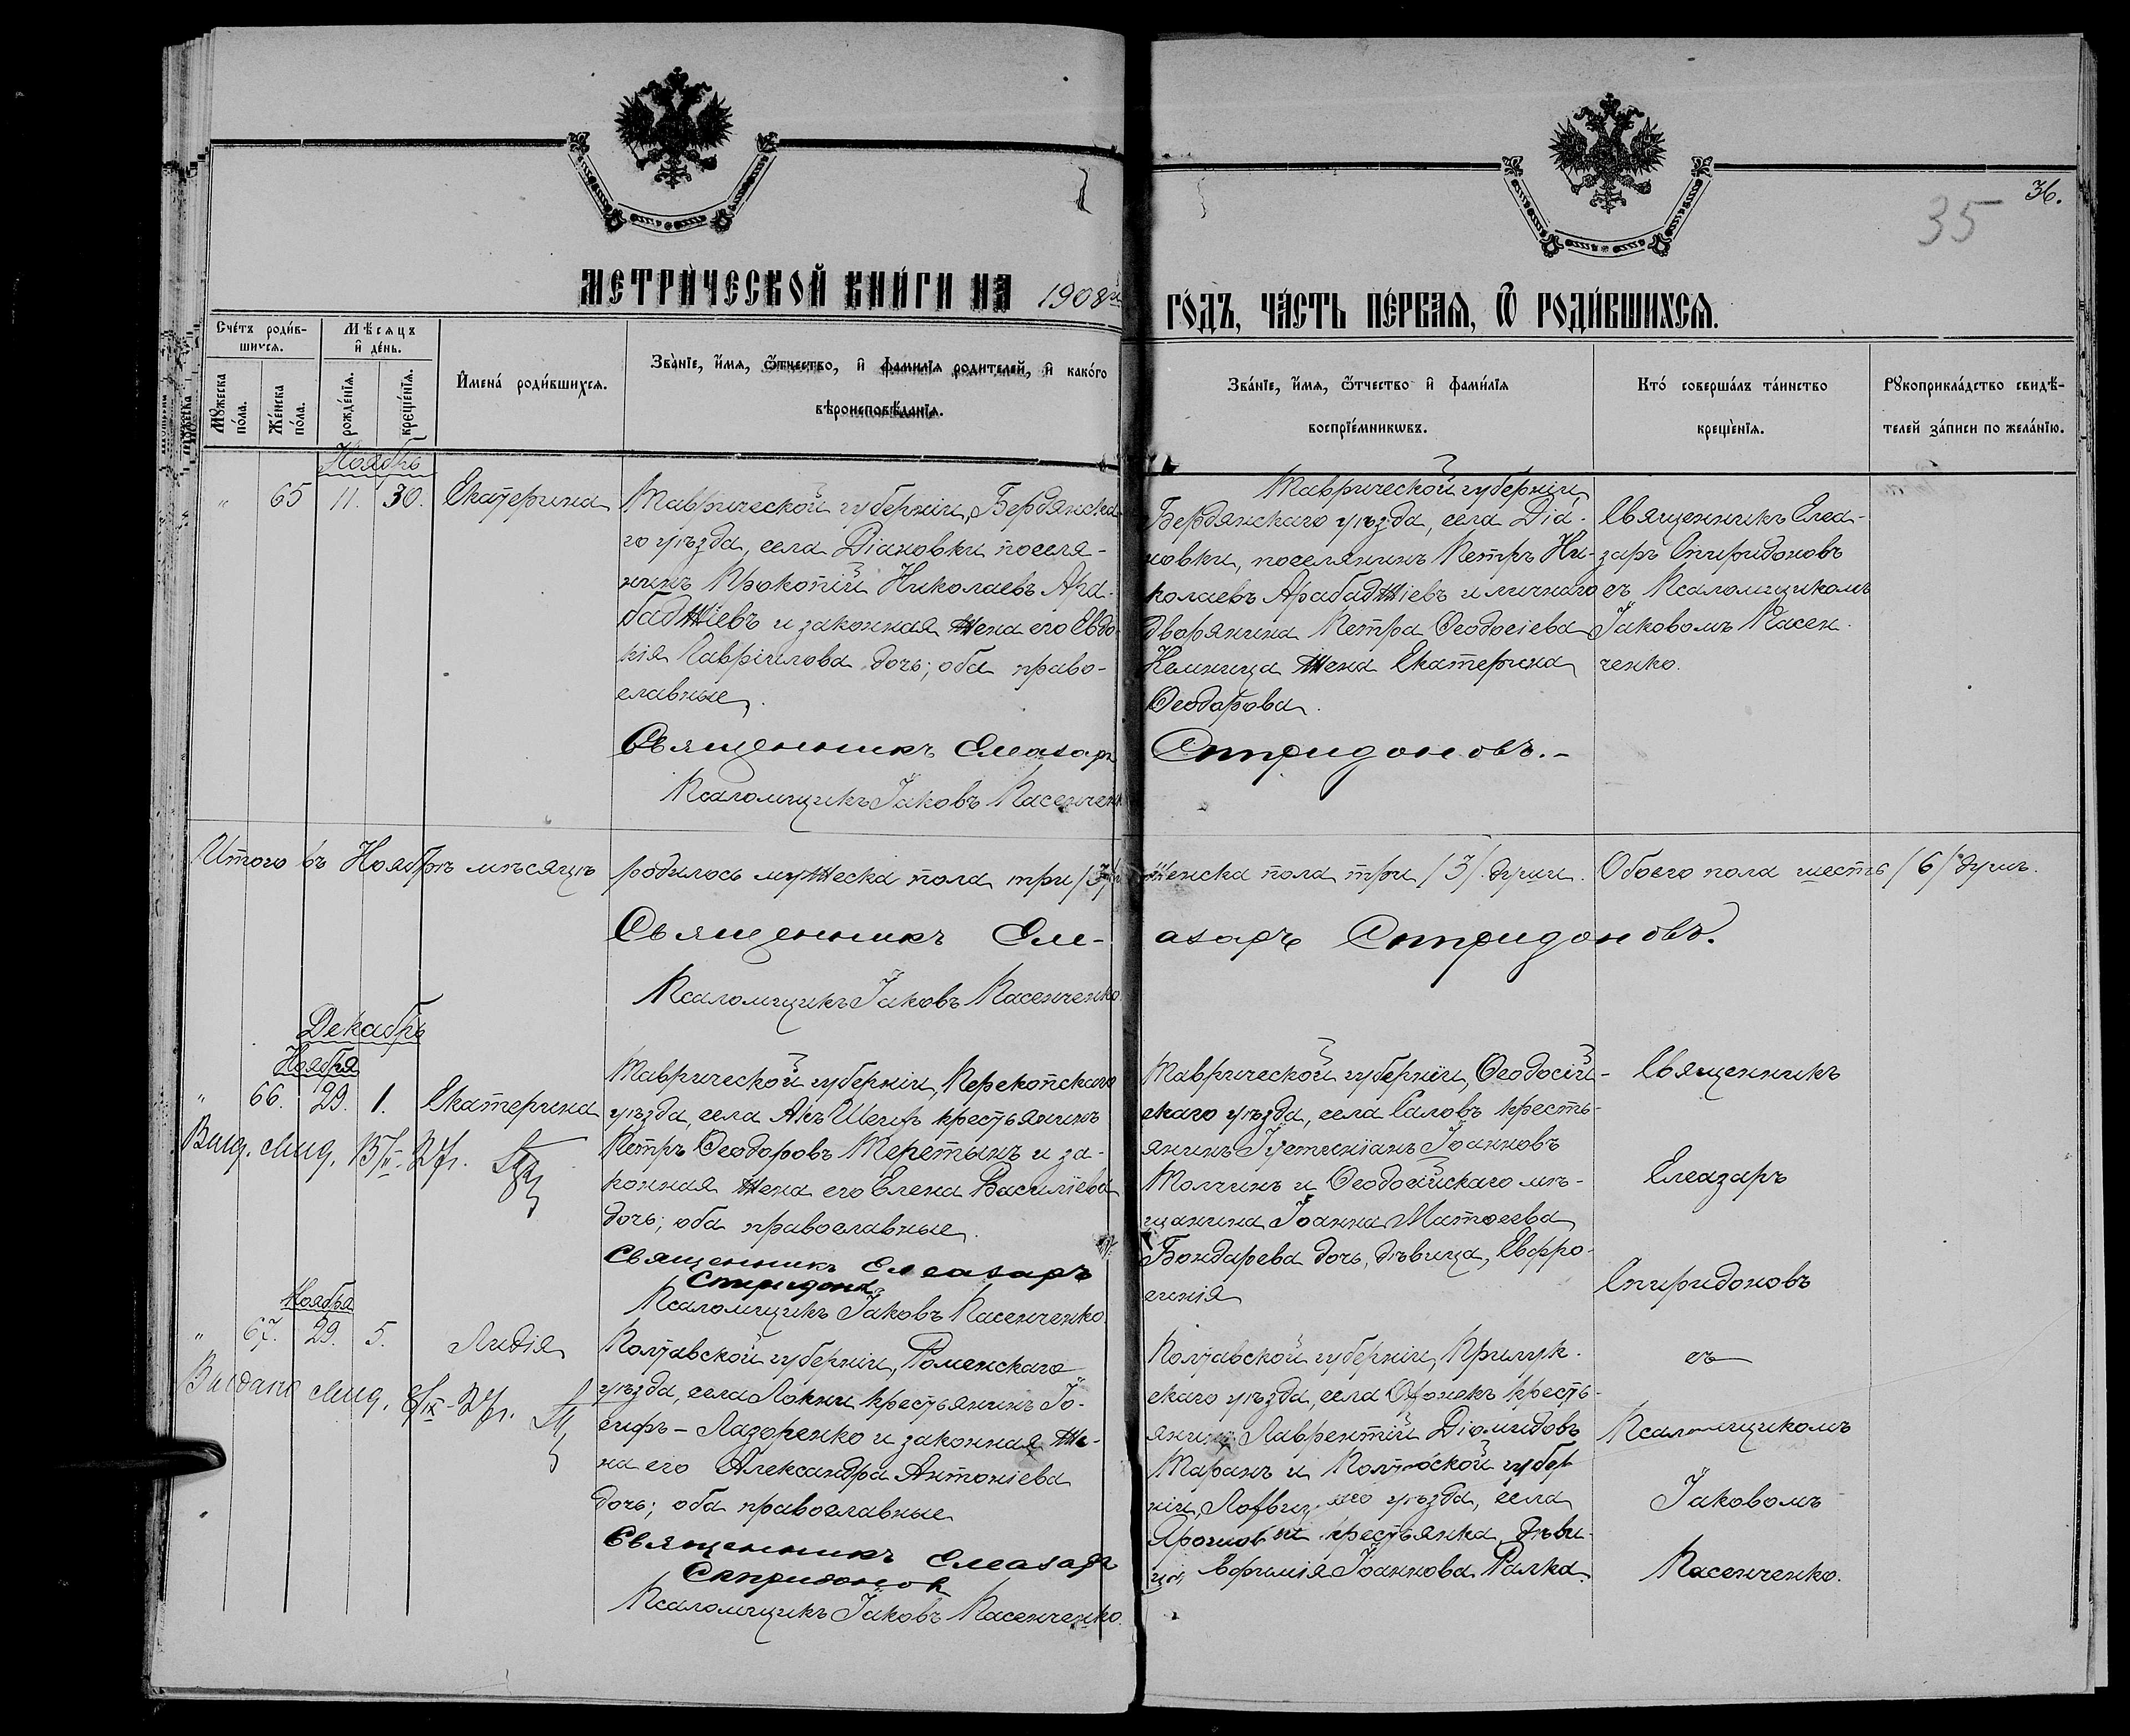 36.
35
МЕТРИ́ЧЕСКОЙ КНИ́ГИ НА 1908й
ГО́ДЪ, ЧА́СТЬ ПЕ́РВАѦ, Ѿ РОДИ́ВШИХСѦ.
Сче́тъ роди́в-
шихсѧ.
Мѣ́сѧцъ
и҆ де́нь.
Мꙋ́жеска
по́ла.
Же́нска
по́ла.
рожде́нїѧ.
креще́нїѧ.
И҆мена̀ роди́вшихсѧ.
Зва́нїе, и҆́мѧ, ѻ҆́тчество, и҆ фами́лїѧ роди́телей, и҆ како́го
вѣроисповѣ́данїѧ.
Зва́нїе, и҆́мѧ, ѻ҆́тчество и҆ фами́лїѧ
воспрїе́мникѡвъ.
Кто̀ соверша́лъ та́инство
креще́нїѧ.
Рꙋкоприкла́дство свидѣ́-
телей за́писи по жела́нїю.
Ноябрь
" 65 11. 30. Екатерина
Таврической губерніи, Бердянска
го уѣзда, села Діановки поселя-
нинъ Прокопій Николаевъ Ара-
баджіевъ и законная жена его Евдо-
кія Гавріилова дочь; оба право-
славные.
Священникъ Елеазаръ Спиридоновъ.-
Псаломщикъ Іаковъ Пасенченк
Таврической губерніи,
Бердянскаго уѣзда, села Діа-
новки, поселянинъ Петръ Ни-
колаевъ Арабаджіевъ и личнаго
дворянина Петра Ѳеодосіева
жена Екатерина
Ѳеодорова.
Священникъ Елеа-
заръ Спиридоновъ
съ Псаломщикомъ
Іаковомъ Пасен-
ченко.
Итого въ Ноябрѣ мѣсяцѣ родилось мужеска пола три /3/ женска пола три /3/ души. Обоего пола шесть /6/ душъ.
Священникъ Еле- азаръ Спиридоновъ.
Псаломщикъ Іаковъ Пасенченко
Декабрь
Ноября
" 66. 29. 1. Екатерина
Таврической губерніи, Перекопскаго
уѣзда, села Акъ Шеихъ крестьянинъ
Петръ Ѳеодоровъ Теретынъ и за-
конная жена его Елена Василіева
дочь; оба православные.
Священникъ Елеазаръ
Спиридоновъ
Псаломщикъ Іаковъ Пасенченко.
Таврической губерніи, Ѳеодосій-
скаго уѣзда, села Саловъ кресть-
янинъ Іустиніанъ Іоанновъ
Толчинъ и Ѳеодосійскаго мѣ-
щанина Іоанна Матѳеева
Бондарева дочь, дѣвица, Евфро-
синія
Священникъ
Елеазаръ
Спиридоновъ
съ
Псаломщикомъ
Іаковомъ
Пасенченко.
Ноября
" 67. 29. 5. Лидія
Полтавской губерніи, Роменскаго
уѣзда, села Локни крестьянинъ Іо-
сифъ - Лазоренко и законная же-
на его Александра Антоніева
дочь; оба православные
Священникъ Елеазаръ
Спиридоновъ
Псаломщикъ Іаковъ Пасенченко.
Полтавской губерніи, Прилук-
скаго уѣзда, села кресть-
янинъ Лаврентій Діомидовъ
Таранъ и Полтавской губер
ніи, уѣзда, села
крестьянка дѣви-
ца, Евфимія Іоаннова Ралка.